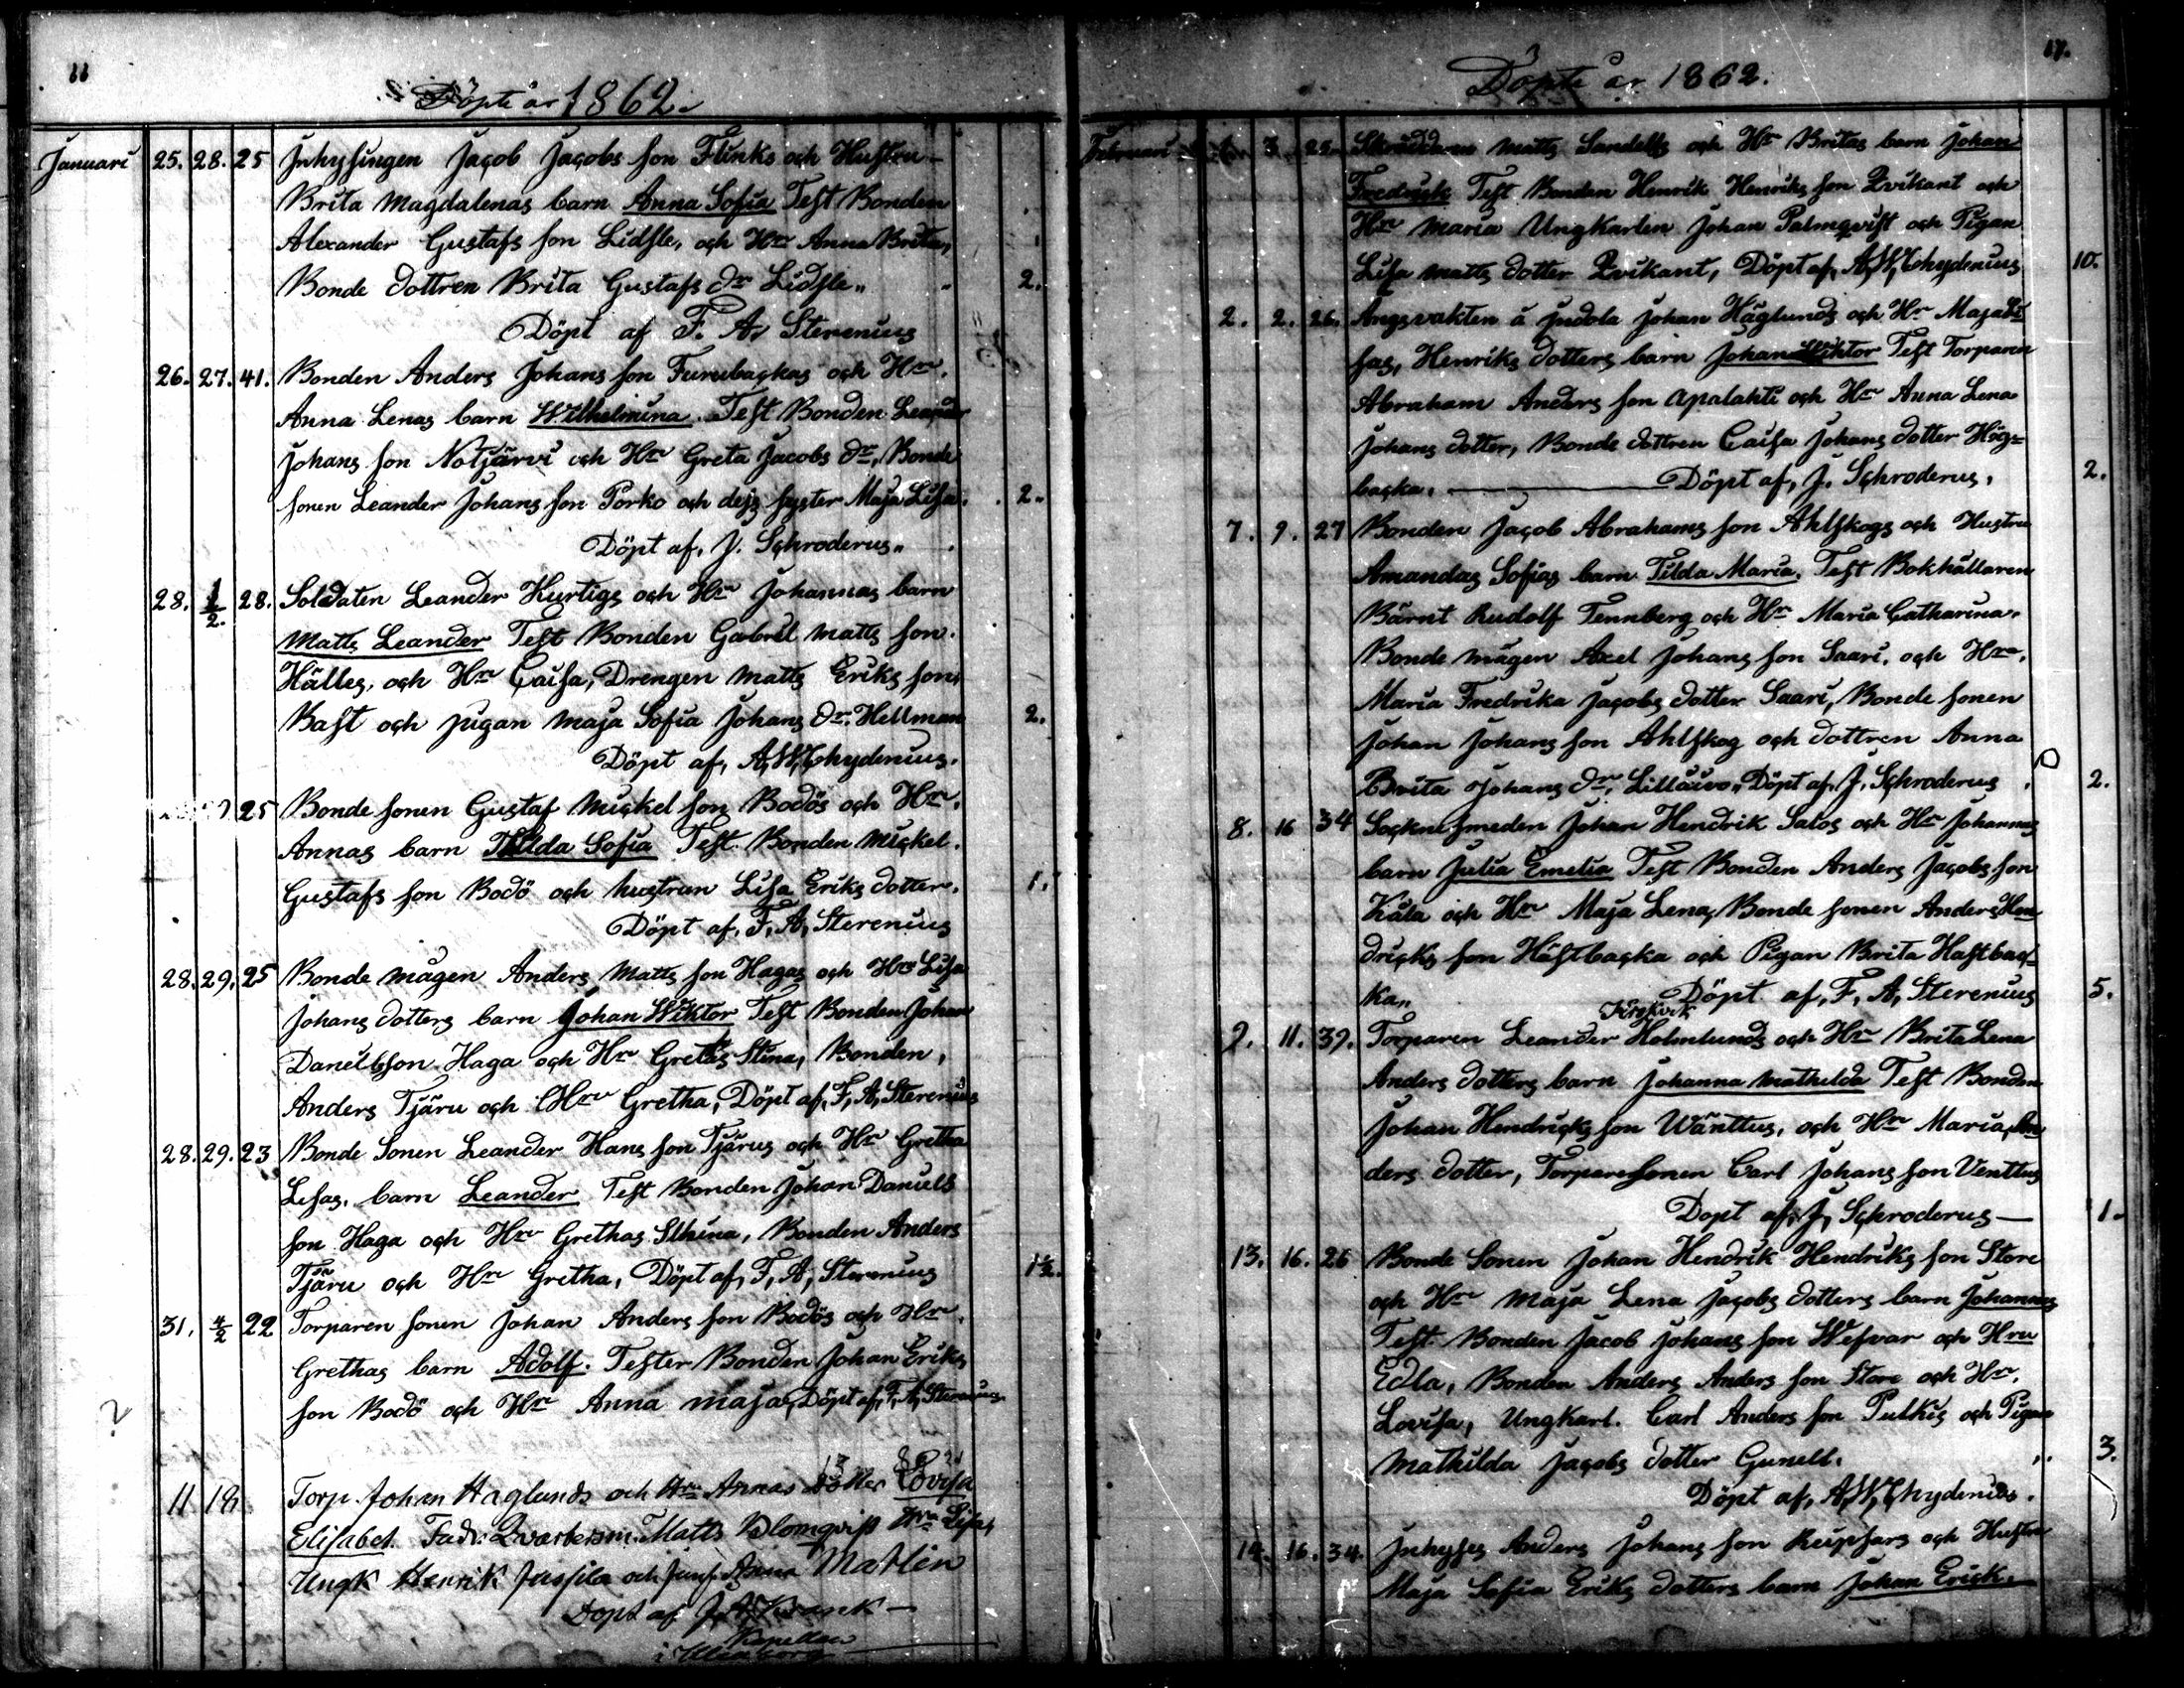 11
Döpte år 1862.
Januari 25. 28. 25 Inhysingen Jacob Jacobs son Flinks och Hustru
Brita Magdalenas barn Anna Sofia Test Bonden
Alexander Gustafs son Lidsle, och Hru Anna Brita,
Bonde dottren Brita Gustafs dr Lidsle 2.
Döpt af F. A. Sterenius
26. 27. 41. Bonden Anders Johans son Furubackas och Hru.
Anna Lenas barn Wilhelmina. Test Bonden Leander
Johans son Notjärvi och Hru Greta Jacobs dr, Bonde
sonen Leander Johans son Porko och dess syster Maja Lisa. 2.
Döpt af, J. Schroderus
28. 1/2. 28. Soldaten Leander Kurtigs och Hru Johannas barn
Matts Leander Test Bonden Gabriel Matts son
Hälles, och Hru Caisa, Drengen Matts Eriks son
Bast och pigan Maja Sofia Johans dr. Hellman 2.
Döpt af, A,W,Chydenius.
25 Bonde sonen Gustaf Mickel son Bodös och Hru.
Annas barn Tilda Sofia Test. Bonden Mickel
Gustafs son Bodö och hustrun Lisa Eriks dotter. 1.
Döpt af, F, A, Sterenius
28. 29. 25 Bonde mågen Anders Matts son Hagas och Hru Lisa
Johans dotters barn Johan Wiktor Test Bonden Johan
Daniel son Haga och Hru Gretas Stina, Bonden,
Anders Tjäru och Hru Gretha, Döpt af, F, A, Sterenius
28. 29. 23 Bonde Sonen Leander Hans son Tjärus och Hru Gretha
Lisas, barn Leander Test Bonden Johan Daniels
son Haga och Hru Grethas Sthina, Bonden Anders
Tjäru och Hru Gretha, Döpt af, F, A, Sterenius 1 1/2.
31. 4/2 22 Torparen sonen Johan Anders son Bodös och Hru.
Grethas barn Adolf. Tester Bonden Johan Eriks
son Bodö och Hru Anna Maja, Döpt af, F, A, Sterenius
11 18 Torp. Johan Haglunds och Hru Annas dotter Lovisa
Elisabet. Fadr. Matts Blomqvist Hru Lisa,
Ungk Henrik Jussila och Jungf. Anna Matlin
Döpt af
Kapellan
i
17.
Döpte år 1862.
Februari 1. 3. 25. Skräddaren Matts Sandells och Hru Britas barn Johan
Fredrick Test Bonden Henrik Henriks son Qvikant och
Hru Maria Ungkarlen Johan Palmqvist och Pigan
Lisa Matts dotter Qvikant, Döpt af, A,W,Chydenius 10.
2. 2. 26. Ängsvakten å Indola Johan Häglunds och Hru Maja Li
sas, Henriks dotters barn Johan Wiktor Test Torparen
Abraham Anders son Apalahti och Hru Anna Lena
Johans dotter, Bonde dottren Caisa Johans dotter Hög=
backa. Döpt af, J. Schroderus, 2.
7. 9. 27 Bonden Jacob Abrahams son Ahlskogs och Hustru
Amandas Sofias barn Tilda Maria. Test Bokhållaren
Bärnt Rudolf Tennberg och Hru Maria Catharina.
Bonde mågen Axel Johans son Saari, och Hru.
Maria Fredrika Jacobs dotter Saari, Bonde sonen
Johan Johans son Ahlskog och dottren Anna
Brita Johans dr, Döpt af, J. Schroderus 2.
8. 16 34 Sockne smeden Johan Hendrik Salos och Hru Johannas
barn Julia Emelia Test Bonden Anders Jacobs son
Kåla och Hru Maja Lena, Bonde sonen Anders Hen
dricks son Hästbacka och Pigan Brita Hästbac
ka, Döpt af, F, A, Sterenius 5.
9. 11. 39. Torparen Leander Holmlunds och Hru Brita Lena
Anders dotters barn Johanna Mathilda Test Bonden
Johan Hendricks son Wänttus, och Hru Maria An
ders dotter, Torparesonen Carl Johans son Venttus
Döpt af, J, Schroderus 1.
13. 16. 26 Bonde Sonen Johan Hendrik Hendriks son Store
och Hru Maja Lena Jacobs dotters barn Johannes
Test Bonden Jacob Johans son Wefvar och Hru
Edla, Bonden Anders Anders son Store och Hru.
Lovisa, Ungkarl. Carl Anders son Pulkis och Pigan
Mathilda Jacobs dotter Gunell. 3.
Döpt af, A,W,Chydenius.
14. 16. 34. Inhyses Anders Johans son Reipsars och Hustru
Maja Sofia Eriks dotters barn Johan Erick.